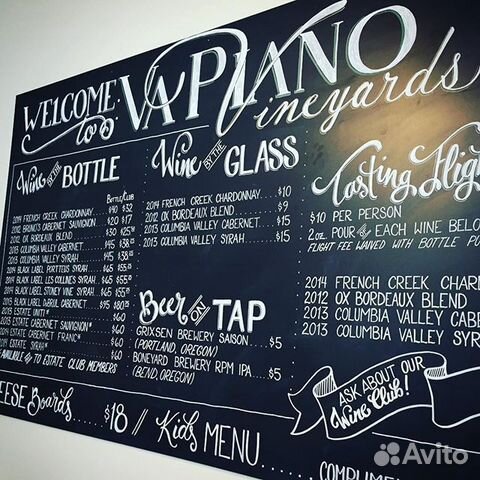 WELCOME
to
VA PIANO
Vineyards
Wine BY THE BOTTLE
BOTTLE/CLUB
2014 FRENCH CREEK CHARDONNAY $40 $32
2012 BRUNO'S CABERNET SAUVIGNON $20 $17
2012 OX BORDEAUX BLEND $30
2013 COLUMBIA VALLEY CABERNET $45
2013 COLUMBIA VALLEY SYRAH $45
2014 BLACK LABEL PORTTEUS SYRAH $65
2014 BLACK LABEL LES COLLINES SYRAH $65
2014 BLACK LABEL STONEY VINE SYRAH $65
2013 BLACK LABEL DUBRUL CABERNET $80
2013 ESTATE UNITI* $60
2013 ESTATE CABERNET SAUVIGNON* $60
2014 ESTATE CABERNET FRANC* $60
2014 ESTATE SYRAH* $60
AVAILABLE TO ESTATE CLUB MEMBERS
Wine BY THE GLASS
2014 FRENCH CREEK CHARDONNAY $10
2012 OX BORDEAUX BLEND $9
2013 COLUMBIA VALLEY CABERNET $15
2013 COLUMBIA VALLEY SYRAH $15
Beer BY TAP
GRIXSEN BREWERY SAISON $5
(PORTLAND, OREGON)
BONEYARD BREWERY RPM IPA $5
(BEND, OREGON)
Tasting Fligh
$10 PER PERSON
2 oz. POUR OF EACH WINE BELO
FLIGHT FEE WAIVED WITH BOTTLE PU
2014 FRENCH CREEK CHARD
2012 OX BORDEAUX BLEND
2013 COLUMBIA VALLEY CABE
2013 COLUMBIA VALLEY SYR
ASK ABOUT OUR
Wine Club!
EESE Boards $18 // Kids MENU
COMPLIME
Avito